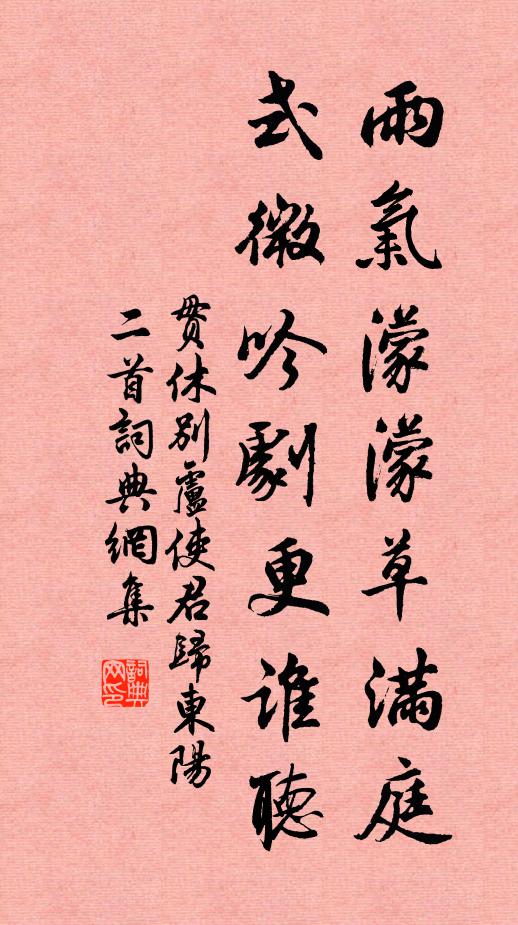 雨氣濛濛草滿庭
式微吟劇更誰聽
貫休別盧使君歸東陽
二首詞典網集
詞典网印